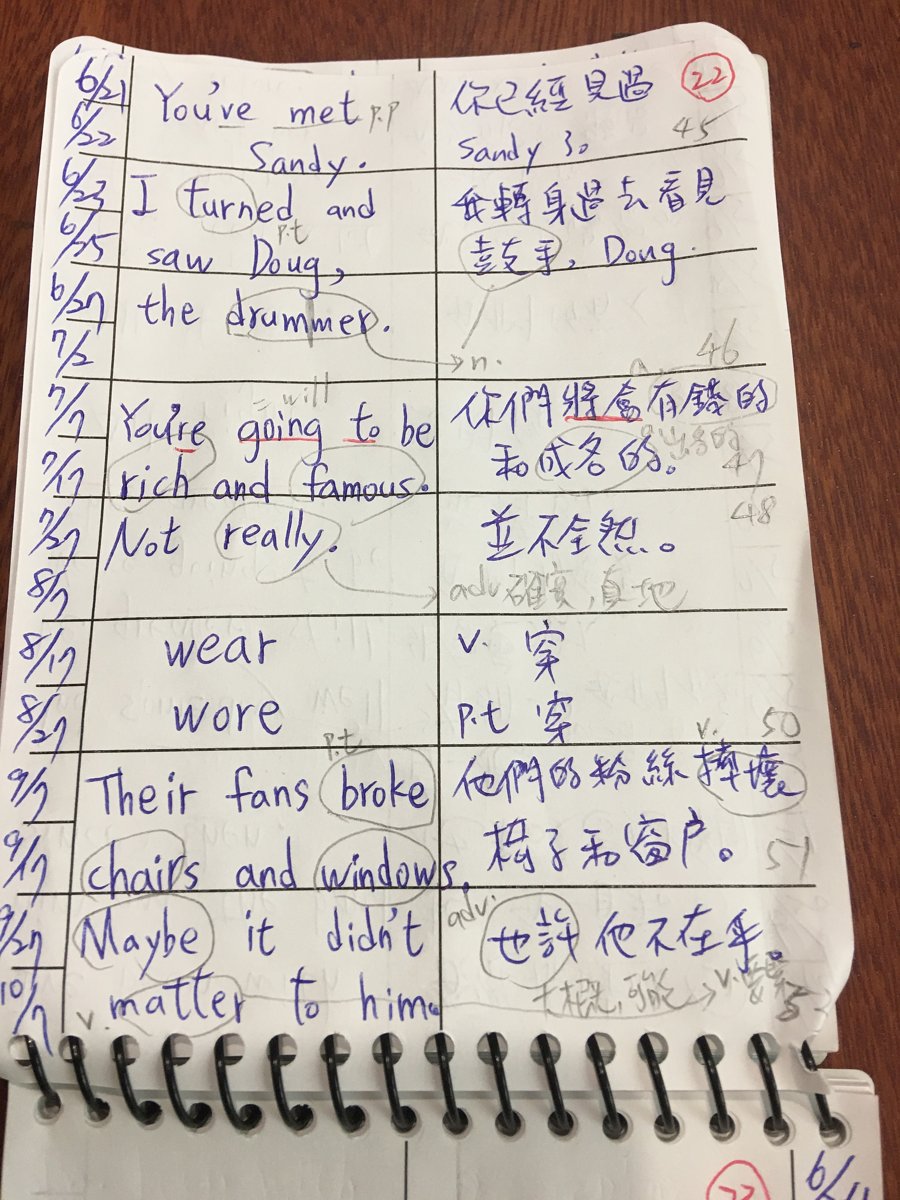 6/21
6/22
6/23
6/25
6/27
7/2
7/7
7/17
7/27
8/7
8/17
8/27
9/7
9/17
9/27
10/7
22
You've met p.p
Sandy.
你已經見過
Sandy了。
45
I turned and
p.t
saw Doug,
the drummer.
我轉身過去看見
鼓手, Doug.
n.
46
= will
You're going to be
rich and famous.
你們將會有錢的
和成名的。
出名的
47
Not really.
並不全然。
48
adv. 確實, 真地
wear
v. 穿
wore
p.t 穿
50
p.t
Their fans broke
chairs and windows.
v.
他們的粉絲摔壞
椅子和窗户。
51
Maybe it didn't
v. matter to him.
adv.
也許他不在乎
大概, 可能
v.
6/11